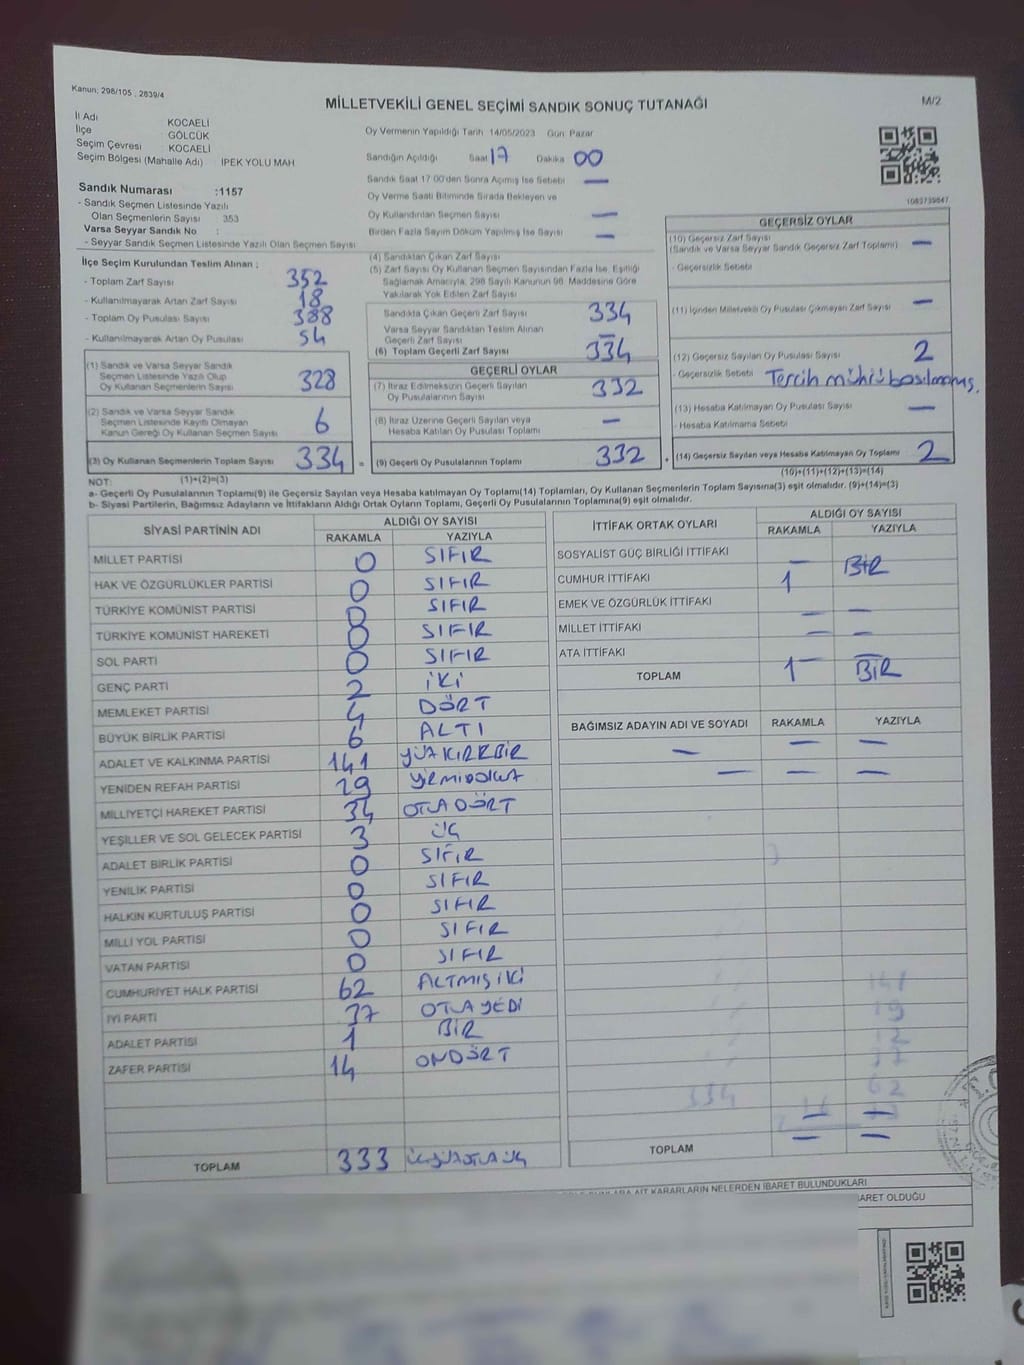 Kanun; 298/105 , 2839/4
MİLLETVEKİLİ GENEL SEÇİMİ SANDIK SONUÇ TUTANAĞI
M/2
İl Adı KOCAELİ
İlçe GÖLCÜK
Seçim Çevresi KOCAELİ
Seçim Bölgesi (Mahalle Adı) İPEK YOLU MAH
Sandık Numarası :1157
- Sandık Seçmen Listesinde Yazılı
Olan Seçmenlerin Sayısı 353
Varsa Seyyar Sandık No :
- Seyyar Sandık Seçmen Listesinde Yazılı Olan Seçmen Sayısı
Oy Vermenin Yapıldığı Tarih 14/05/2023 Gün: Pazar
Sandığın Açıldığı Saat 17 Dakika 00
Sandık Saat 17:00'den Sonra Açılmış İse Sebebi —
Oy Verme Saati Bitiminde Sırada Bekleyen ve
Oy Kullandırılan Seçmen Sayısı —
Birden Fazla Sayım Döküm Yapılmış İse Sayısı —
1083739647
İlçe Seçim Kurulundan Teslim Alınan ;
- Toplam Zarf Sayısı 352
- Kullanılmayarak Artan Zarf Sayısı 18
- Toplam Oy Pusulası Sayısı 388
- Kullanılmayarak Artan Oy Pusulası 54
(1) Sandık ve Varsa Seyyar Sandık
Seçmen Listesinde Yazılı Olup
Oy Kullanan Seçmenlerin Sayısı 328
(2) Sandık ve Varsa Seyyar Sandık
Seçmen Listesinde Kayıtlı Olmayan
Kanun Gereği Oy Kullanan Seçmen Sayısı 6
(3) Oy Kullanan Seçmenlerin Toplam Sayısı 334 =
(1)+(2)=(3)
(4) Sandıktan Çıkan Zarf Sayısı
(5) Zarf Sayısı Oy Kullanan Seçmen Sayısından Fazla İse, Eşitliği
Sağlamak Amacıyla, 298 Sayılı Kanunun 98. Maddesine Göre
Yakılarak Yok Edilen Zarf Sayısı
Sandıkta Çıkan Geçerli Zarf Sayısı 334
Varsa Seyyar Sandıktan Teslim Alınan
Geçerli Zarf Sayısı —
(6) Toplam Geçerli Zarf Sayısı 334
GEÇERLİ OYLAR
(7) İtiraz Edilmeksizin Geçerli Sayılan
Oy Pusulalarının Sayısı 332
(8) İtiraz Üzerine Geçerli Sayılan veya
Hesaba Katılan Oy Pusulası Toplamı —
(9) Geçerli Oy Pusulalarının Toplamı 332 +
GEÇERSİZ OYLAR
(10) Geçersiz Zarf Sayısı —
(Sandık ve Varsa Seyyar Sandık Geçersiz Zarf Toplamı)
- Geçersizlik Sebebi
(11) İçinden Milletvekili Oy Pusulası Çıkmayan Zarf Sayısı —
(12) Geçersiz Sayılan Oy Pusulası Sayısı 2
- Geçersizlik Sebebi Tercih mührü basılmamış.
(13) Hesaba Katılmayan Oy Pusulası Sayısı —
- Hesaba Katılmama Sebebi
(14) Geçersiz Sayılan veya Hesaba Katılmayan Oy Toplamı 2
(10)+(11)+(12)+(13)=(14)
NOT:
a- Geçerli Oy Pusulalarının Toplamı(9) ile Geçersiz Sayılan veya Hesaba katılmayan Oy Toplamı(14) Toplamları, Oy Kullanan Seçmenlerin Toplam Sayısına(3) eşit olmalıdır. (9)+(14)=(3)
b- Siyasi Partilerin, Bağımsız Adayların ve İttifakların Aldığı Ortak Oyların Toplamı, Geçerli Oy Pusulalarının Toplamına(9) eşit olmalıdır.
SİYASİ PARTİNİN ADI ALDIĞI OY SAYISI
RAKAMLA YAZIYLA
MİLLET PARTİSİ 0 SIFIR
HAK VE ÖZGÜRLÜKLER PARTİSİ 0 SIFIR
TÜRKİYE KOMÜNİST PARTİSİ 0 SIFIR
TÜRKİYE KOMÜNİST HAREKETİ 0 SIFIR
SOL PARTİ 0 SIFIR
GENÇ PARTİ 2 İKİ
MEMLEKET PARTİSİ 4 DÖRT
BÜYÜK BİRLİK PARTİSİ 6 ALTI
ADALET VE KALKINMA PARTİSİ 141 YÜZ KIRKBİR
YENİDEN REFAH PARTİSİ 29 YİRMİDOKUZ
MİLLİYETÇİ HAREKET PARTİSİ 34 OTUZ DÖRT
YEŞİLLER VE SOL GELECEK PARTİSİ 3 ÜÇ
ADALET BİRLİK PARTİSİ 0 SIFIR
YENİLİK PARTİSİ 0 SIFIR
HALKIN KURTULUŞ PARTİSİ 0 SIFIR
MİLLİ YOL PARTİSİ 0 SIFIR
VATAN PARTİSİ 0 SIFIR
CUMHURİYET HALK PARTİSİ 62 ALTMIŞ İKİ
İYİ PARTİ 37 OTUZ YEDİ
ADALET PARTİSİ 1 BİR
ZAFER PARTİSİ 14 ONDÖRT
TOPLAM 333 ÜÇYÜZOTUZ ÜÇ
İTTİFAK ORTAK OYLARI ALDIĞI OY SAYISI
RAKAMLA YAZIYLA
SOSYALİST GÜÇ BİRLİĞİ İTTİFAKI —
CUMHUR İTTİFAKI 1 BİR
EMEK VE ÖZGÜRLÜK İTTİFAKI — —
MİLLET İTTİFAKI — —
ATA İTTİFAKI — —
TOPLAM 1 BİR
BAĞIMSIZ ADAYIN ADI VE SOYADI RAKAMLA YAZIYLA
— — —
— — —
334
62
— —
TOPLAM — —
AİT KARARLARIN NELERDEN İBARET BULUNDUKLARI
İBARET OLDUĞU